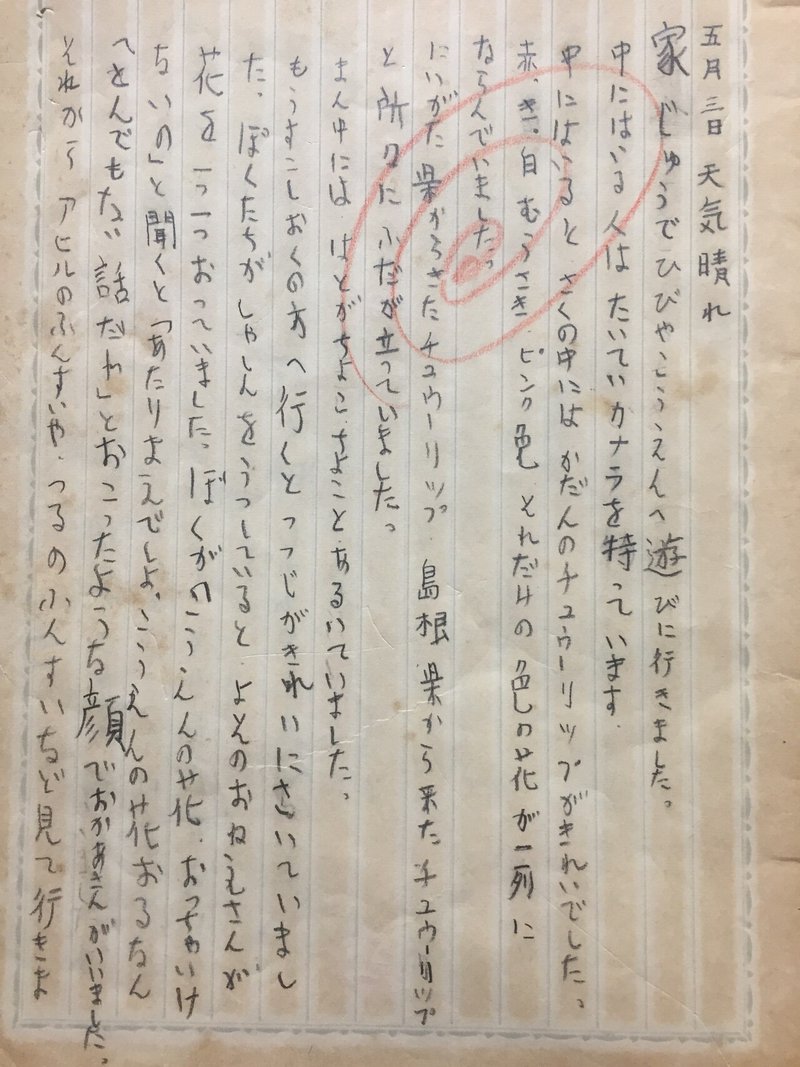 五月三日 天気晴れ
家じゅうでひびやこうえんへ遊びに行きました。
中にはいる人はたいていカナラを特っています.
中にはいるとさくの中にはかだんのチュウーリップがきれいでした。
赤、き、白むらさき、ピンク色それだけの色の花が一列に
ならんでいました。
にいがた県からきたチュウーリップ、島根県から来たチュウーリップ
と所々にふだが立っていました。
まん中には、はとがちよこ、ちよことあるいていました。
もうすこしおくの方へ行くとつつじがきれいにさいていまし
た。ぼくたちがしゃしんをうつしているとよそのおねえさんが
花を一つおっていました。ぼくが「こうえんの花、おっちゃいけ
ないの」と聞くと「あたりまえでしょ、こうえんの花おるなん
てとんでもない話だわ」とおこったような顔でおかあさんがいいました。
それからアヒルのふんすいや、つるのふんすいなど見て行きま